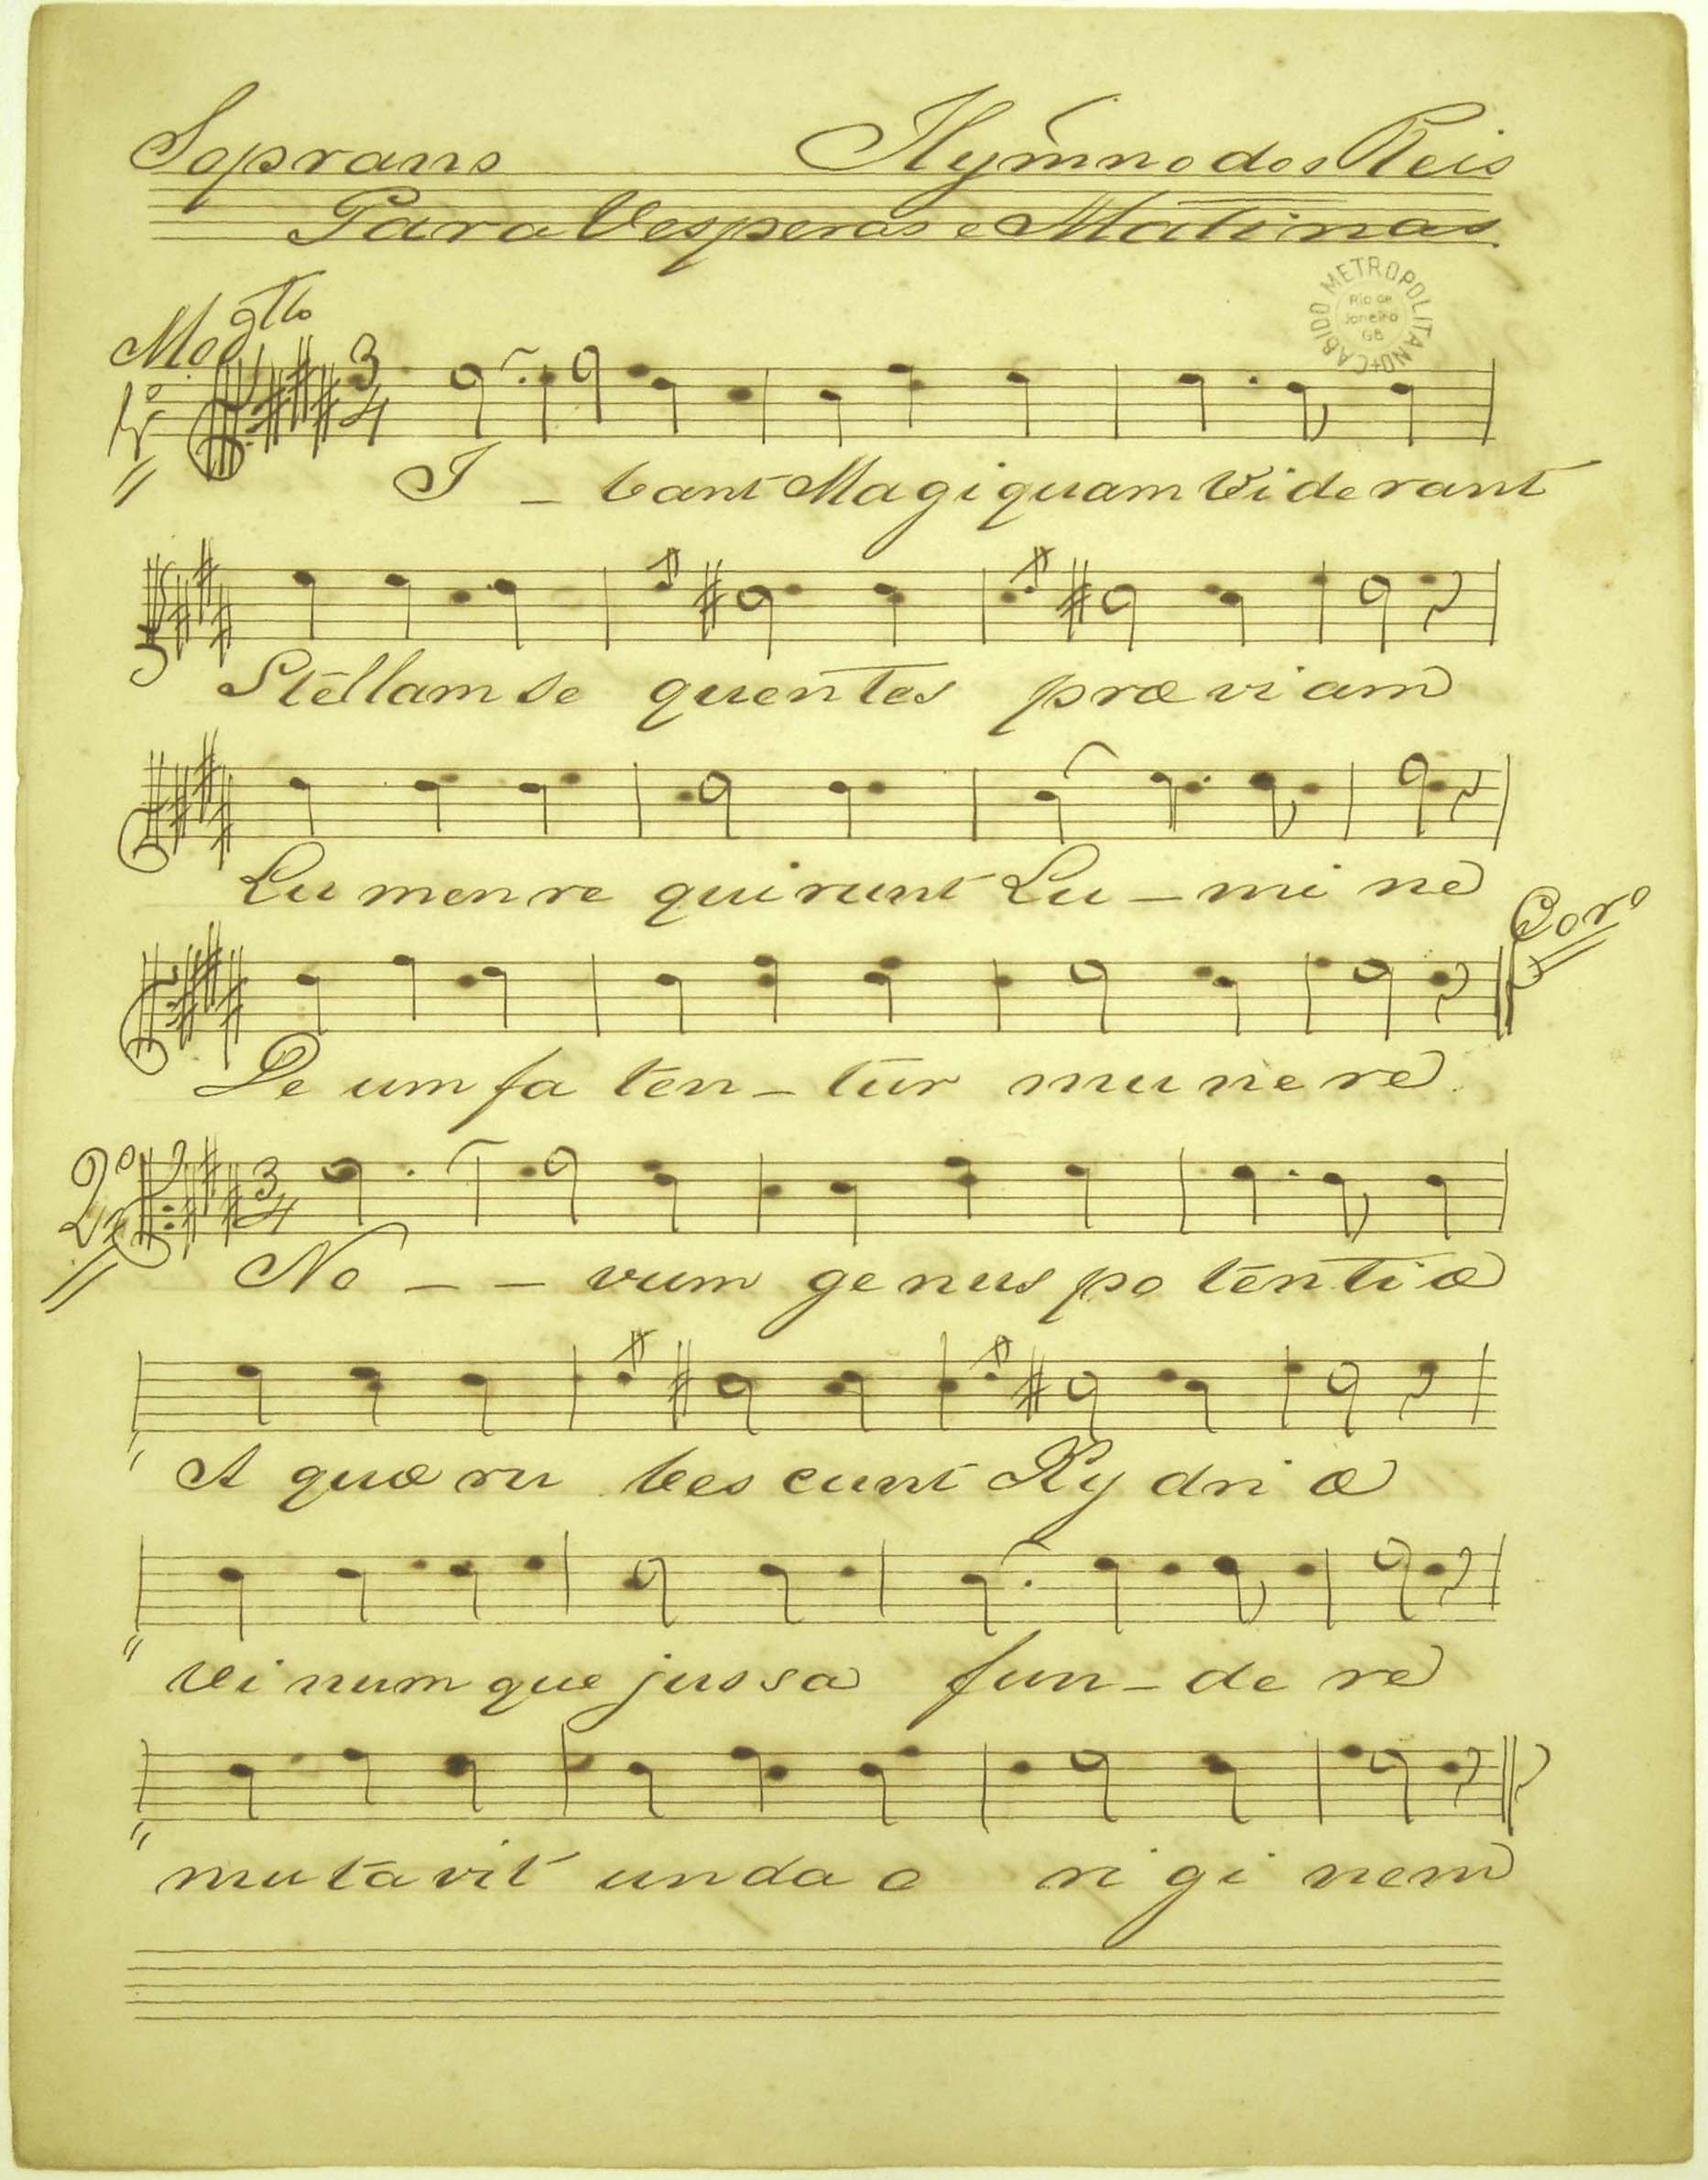 Soprano Hymno dos Reis
Para Vesperas e Matinas
CABIDO METROPOLITANO
Rio de
Janeiro
GB
Mod tto
1º 3/4
I - bant Magi quam Viderant
Stellam se quentes præ vi am
Lu men re quirunt Lu - mi ne
Coro
De um fa ten - tur mu ne re
2º 3/4
No - - vum ge nus po tenti æ
A quæ ru bes cunt Hy dri æ
Vi num que jussa fun - de re
mu ta vit unda o ri gi nem